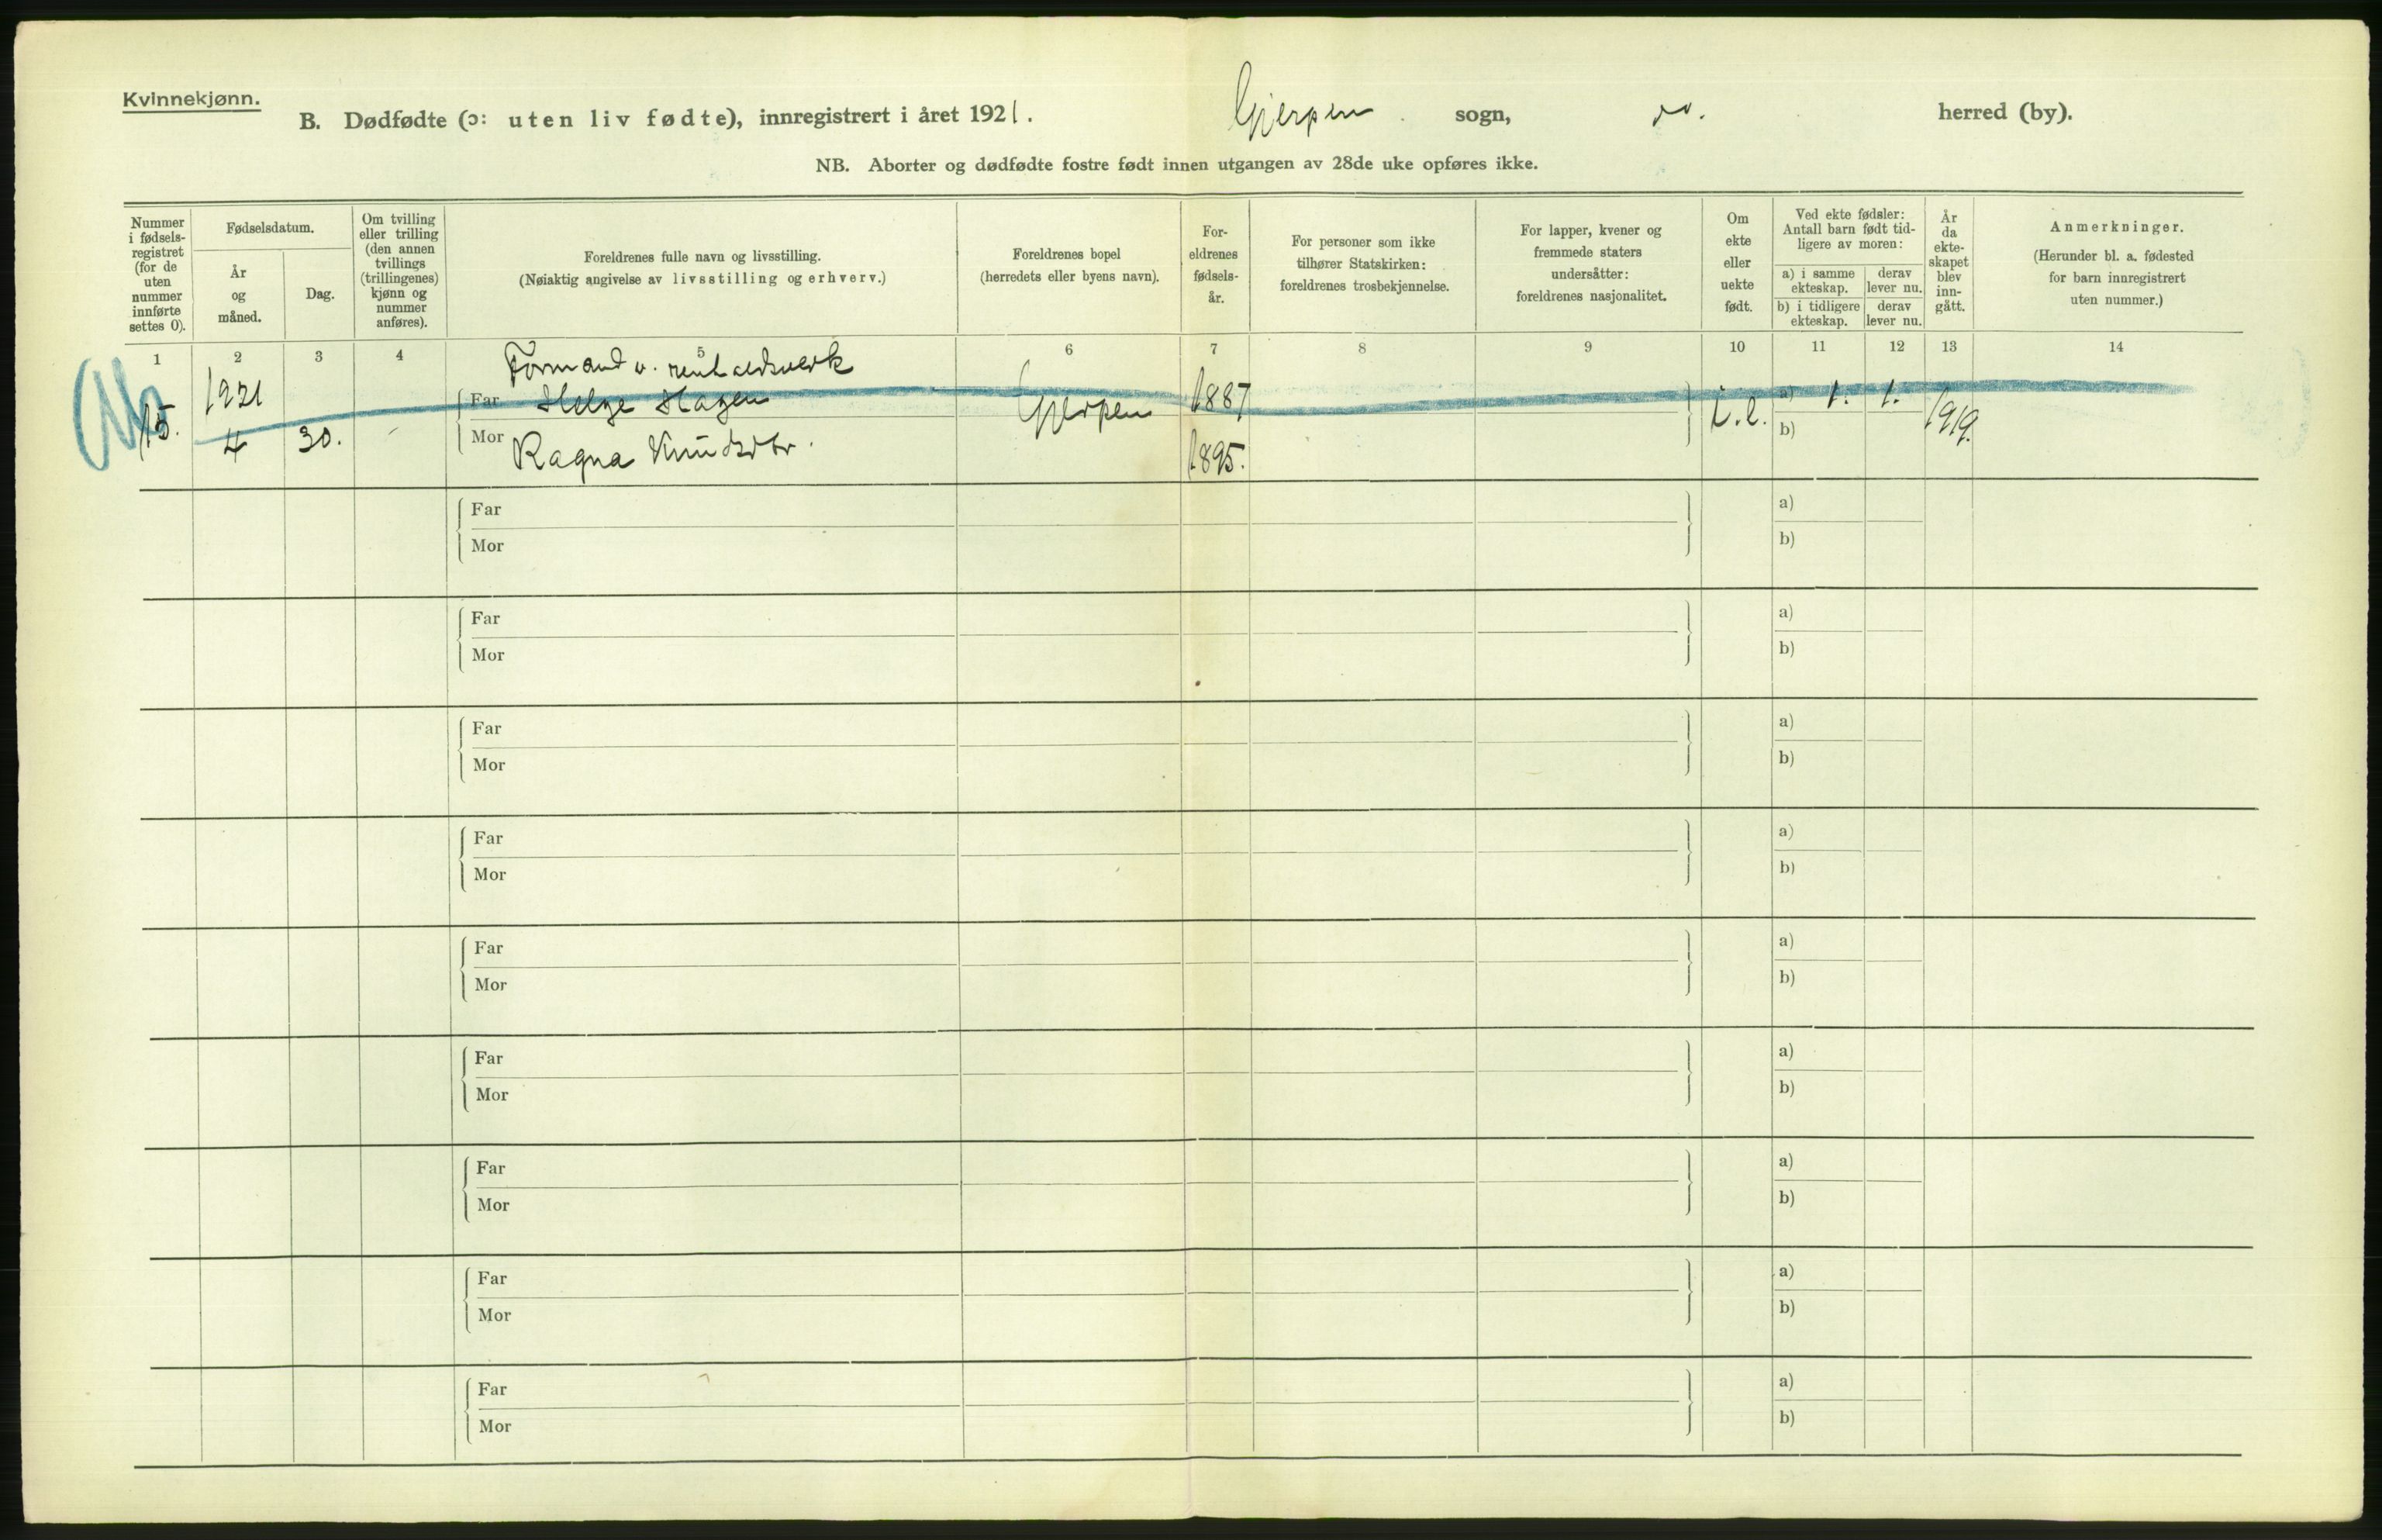 Kvinnekjønn.
B. Dødfødte (ɔ: uten liv fødte), innregistrert i året 1921. Gjerpen sogn, do. herred (by).
NB. Aborter og dødfødte fostre født innen utgangen av 28de uke opføres ikke.
Nummer
i fødsels-
registret
(for de
uten
nummer
innførte
settes 0).
Fødselsdatum.
År
og
måned.
Dag.
Om tvilling
eller trilling
(den annen
tvillings
(trillingenes)
kjønn og
nummer
anføres).
Foreldrenes fulle navn og livsstilling.
(Nøiaktig angivelse av livsstilling og erhverv.)
Foreldrenes bopel
(herredets eller byens navn).
For-
eldrenes
fødsels-
år.
For personer som ikke
tilhører Statskirken:
foreldrenes trosbekjennelse.
For lapper, kvener og
fremmede staters
undersåtter:
foreldrenes nasjonalitet.
Om
ekte
eller
uekte
født.
Ved ekte fødsler:
Antall barn født tid-
ligere av moren:
a) i samme
ekteskap.
derav
lever nu.
b) i tidligere
ekteskap.
derav
lever nu.
År
da
ekte-
skapet
blev
inn-
gått.
Anmerkninger.
(Herunder bl. a. fødested
for barn innregistrert
uten nummer.)
1 2 3 4 5 6 7 8 9 10 11 12 13 14
Formand v. renholdsverk
15. 1921 4 30. Far Helge Hagen Gjerpen 1887 a) 1. 1. 1919.
Mor Ragna Knudsdtr. 1895. b)
Far a)
Mor b)
Far a)
Mor b)
Far a)
Mor b)
Far a)
Mor b)
Far a)
Mor b)
Far a)
Mor b)
Far a)
Mor b)
Far a)
Mor b)
Far a)
Mor b)